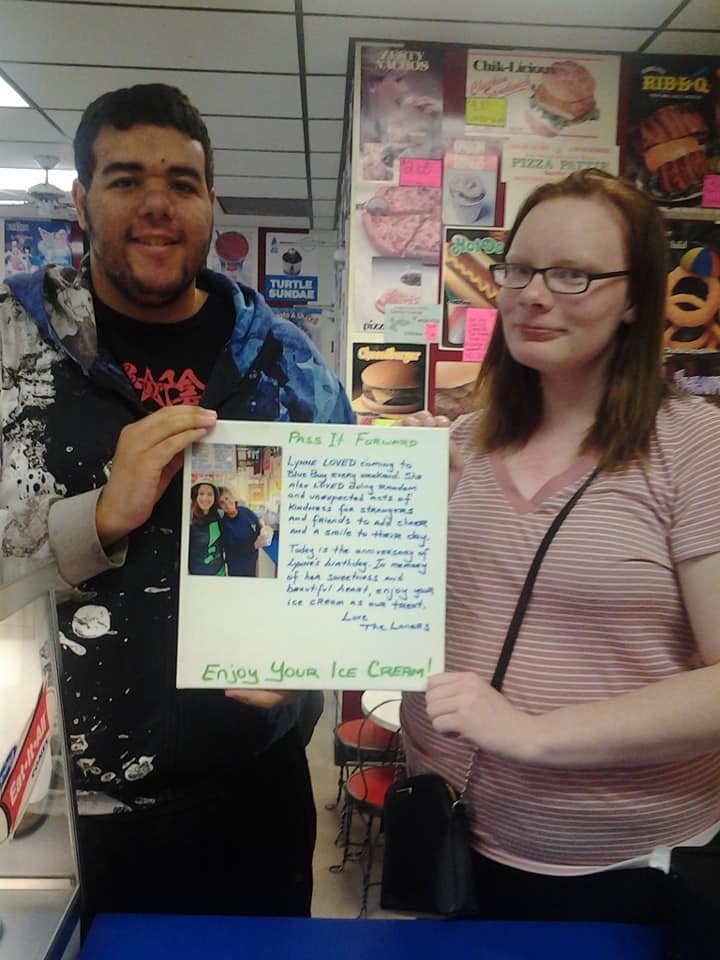 ZESTY
NACHOS
Chik-Licious
RIB-B-Q
PIZZA PATTIE
TURTLE
SUNDAE
pizza
CheeseBurger
Pass It Forward
Lynne LOVED coming to
Blue Boy every weekend. She
also LOVED doing random
and unexpected acts of
kindness for strangers
and friends to add cheer
and a smile to their day.
Today is the anniversary of
Lynne's birthday. In memory
of her sweetness and
beautiful heart, enjoy your
ice cream as our treat.
Love
Enjoy Your Ice Cream!
Eat-It-All